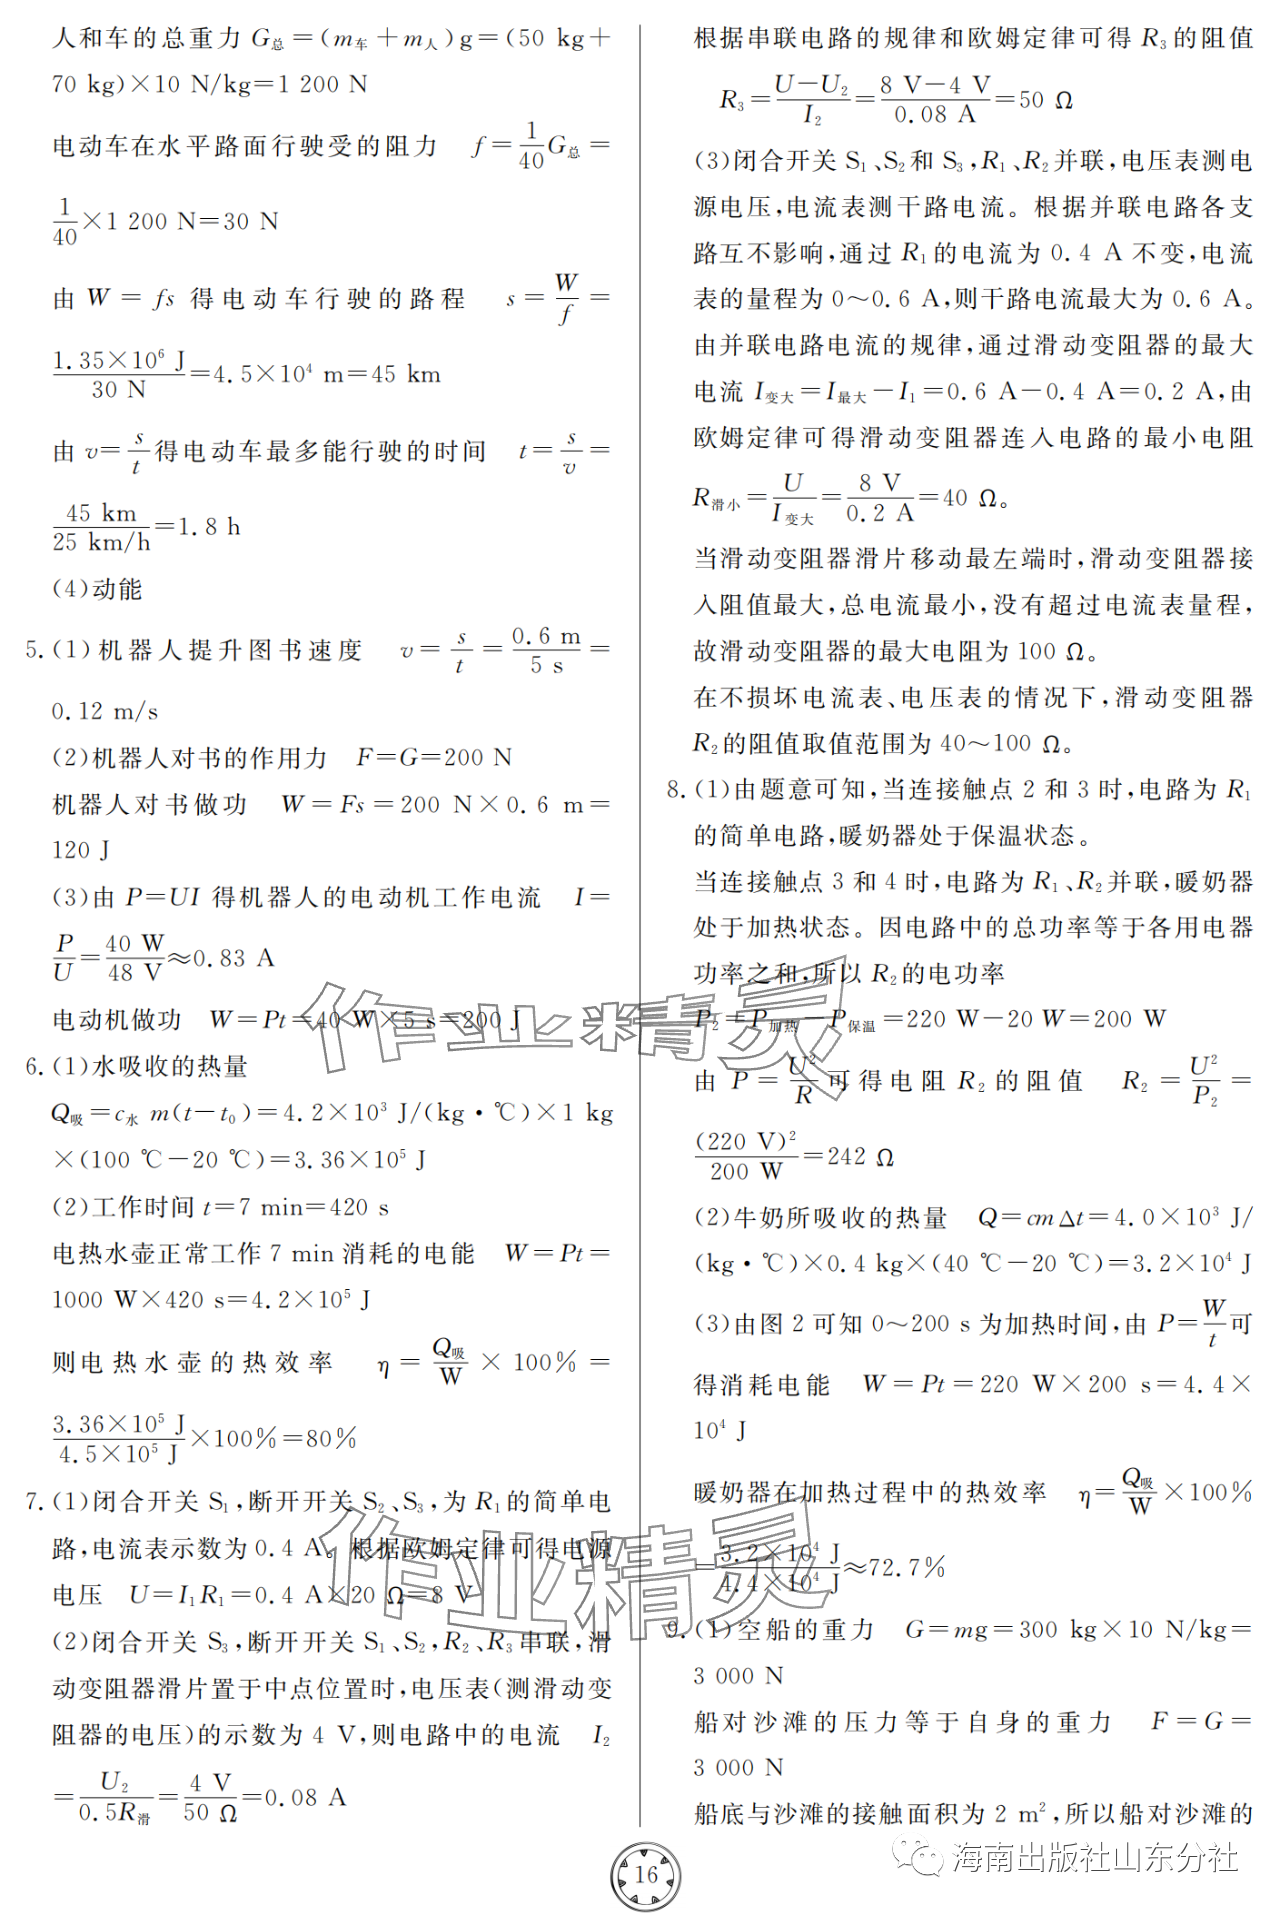 人和车的总重力 G总=(m车+m人)g=(50 kg+
70 kg)×10 N/kg=1 200 N
电动车在水平路面行驶受的阻力 f=1/40 G总=
1/40×1 200 N=30 N
由 W=fs 得电动车行驶的路程 s=W/f=
1.35×10⁶ J/30 N=4.5×10⁴ m=45 km
由 v=s/t得电动车最多能行驶的时间 t=s/v=
45 km/25 km/h=1.8 h
(4)动能
5.(1)机器人提升图书速度 v=s/t=0.6 m/5 s=
0.12 m/s
(2)机器人对书的作用力 F=G=200 N
机器人对书做功 W=Fs=200 N×0.6 m=
120 J
(3)由 P=UI 得机器人的电动机工作电流 I=
P/U=40 W/48 V≈0.83 A
电动机做功 W=Pt=40 W×5 s=200 J
6.(1)水吸收的热量
Q吸=c水 m(t-t₀)=4.2×10³ J/(kg·℃)×1 kg
×(100 ℃-20 ℃)=3.36×10⁵ J
(2)工作时间 t=7 min=420 s
电热水壶正常工作 7 min 消耗的电能 W=Pt=
1000 W×420 s=4.2×10⁵ J
则电热水壶的热效率 η=Q吸/W×100%=
3.36×10⁵ J/4.5×10⁵ J×100%=80%
7.(1)闭合开关 S₁,断开开关 S₂、S₃,为 R₁的简单电
路,电流表示数为 0.4 A。根据欧姆定律可得电源
电压 U=I₁R₁=0.4 A×20 Ω=8 V
(2)闭合开关 S₃,断开开关 S₁、S₂,R₂、R₃串联,滑
动变阻器滑片置于中点位置时,电压表(测滑动变
阻器的电压)的示数为 4 V,则电路中的电流 I₂
=U₂/0.5R滑=4 V/50 Ω=0.08 A
根据串联电路的规律和欧姆定律可得 R₃的阻值
R₃=U-U₂/I₂=8 V-4 V/0.08 A=50 Ω
(3)闭合开关 S₁、S₂和 S₃,R₁、R₂并联,电压表测电
源电压,电流表测干路电流。根据并联电路各支
路互不影响,通过 R₁的电流为 0.4 A 不变,电流
表的量程为 0～0.6 A,则干路电流最大为 0.6 A。
由并联电路电流的规律,通过滑动变阻器的最大
电流 I变大=I最大-I₁=0.6 A-0.4 A=0.2 A,由
欧姆定律可得滑动变阻器连入电路的最小电阻
R滑小=U/I变大=8 V/0.2 A=40 Ω。
当滑动变阻器滑片移动最左端时,滑动变阻器接
入阻值最大,总电流最小,没有超过电流表量程,
故滑动变阻器的最大电阻为 100 Ω。
在不损坏电流表、电压表的情况下,滑动变阻器
R₂的阻值取值范围为 40～100 Ω。
8.(1)由题意可知,当连接触点 2 和 3 时,电路为 R₁
的简单电路,暖奶器处于保温状态。
当连接触点 3 和 4 时,电路为 R₁、R₂并联,暖奶器
处于加热状态。因电路中的总功率等于各用电器
功率之和,所以 R₂的电功率
P₂=P加热-P保温=220 W-20 W=200 W
由 P=U²/R可得电阻 R₂的阻值 R₂=U²/P₂=
(220 V)²/200 W=242 Ω
(2)牛奶所吸收的热量 Q=cmΔt=4.0×10³ J/
(kg·℃)×0.4 kg×(40 ℃-20 ℃)=3.2×10⁴ J
(3)由图 2 可知 0～200 s 为加热时间,由 P=W/t可
得消耗电能 W=Pt=220 W×200 s=4.4×
10⁴ J
暖奶器在加热过程中的热效率 η=Q吸/W×100%
=3.2×10⁴ J/4.4×10⁴ J≈72.7%
9.(1)空船的重力 G=mg=300 kg×10 N/kg=
3 000 N
船对沙滩的压力等于自身的重力 F=G=
3 000 N
船底与沙滩的接触面积为 2 m²,所以船对沙滩的
作业精灵
作业精灵
海南出版社山东分社
16